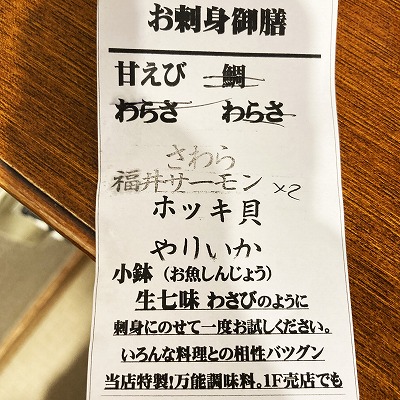 お刺身御膳
甘えび 鯛
わらさ わらさ
さわら
福井サーモン ×2
ホッキ貝
やりいか
小鉢（お魚しんじょう）
生七味 わさびのように
刺身にのせて一度お試しください。
いろんな料理との相性バツグン
当店特製!万能調味料。1F売店でも